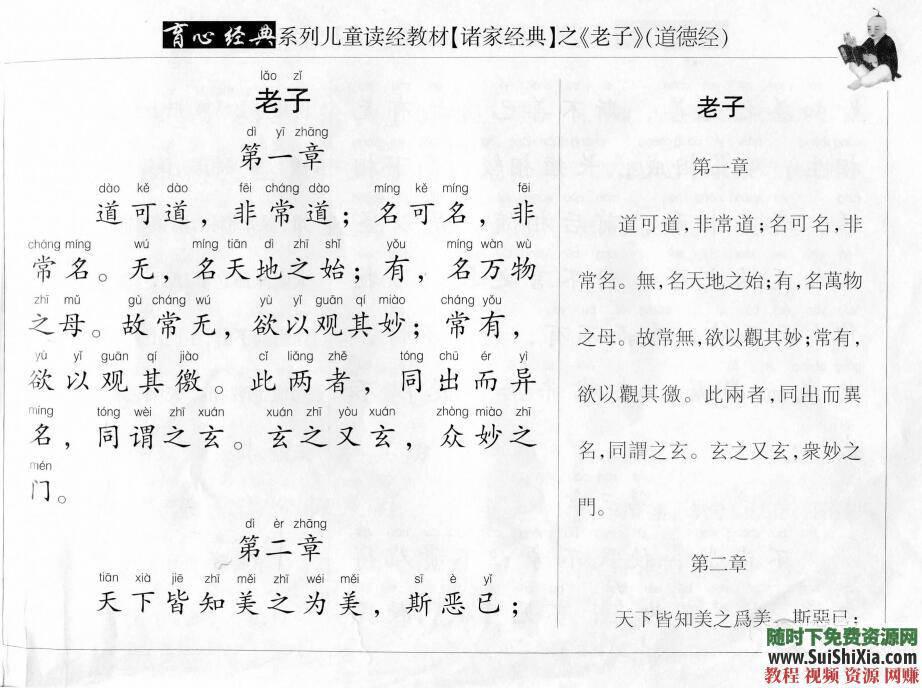 育心经典系列儿童读经教材【诸家经典】之《老子》(道德经)
lǎo zǐ
老子
dì yī zhāng
第一章
dào kě dào fēi cháng dào míng kě míng fēi
道可道，非常道；名可名，非
cháng míng wú míng tiān dì zhī shǐ yǒu míng wàn wù
常名。无，名天地之始；有，名万物
zhī mǔ gù cháng wú yù yǐ guān qí miào cháng yǒu
之母。故常无，欲以观其妙；常有，
yù yǐ guān qí jiào cǐ liǎng zhě tóng chū ér yì
欲以观其徼。此两者，同出而异
míng tóng wèi zhī xuán xuán zhī yòu xuán zhòng miào zhī
名，同谓之玄。玄之又玄，众妙之
mén
门。
dì èr zhāng
第二章
tiān xià jiē zhī měi zhī wéi měi sī è yǐ
天下皆知美之为美，斯恶已；
老子
第一章
道可道，非常道；名可名，非
常名。無，名天地之始；有，名萬物
之母。故常無，欲以觀其妙；常有，
欲以觀其徼。此兩者，同出而異
名，同謂之玄。玄之又玄，衆妙之
門。
第二章
天下皆知美之爲美，斯惡已；
随时下免费资源网
www.SuiShiXia.com
教程 视频 资源 网赚